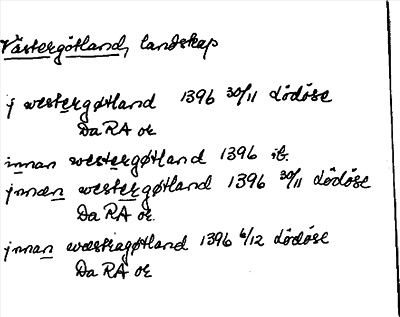 Västergötland, landskap
j westergøtland 1396 30/11 Lödöse
Da RA or
innan westergøtland 1396 ib.
jnnæn westergøtland 1396 30/11 Lödöse
Da RA or
jnnan wæstragøtland 1396 6/12 Lödöse
Da RA or